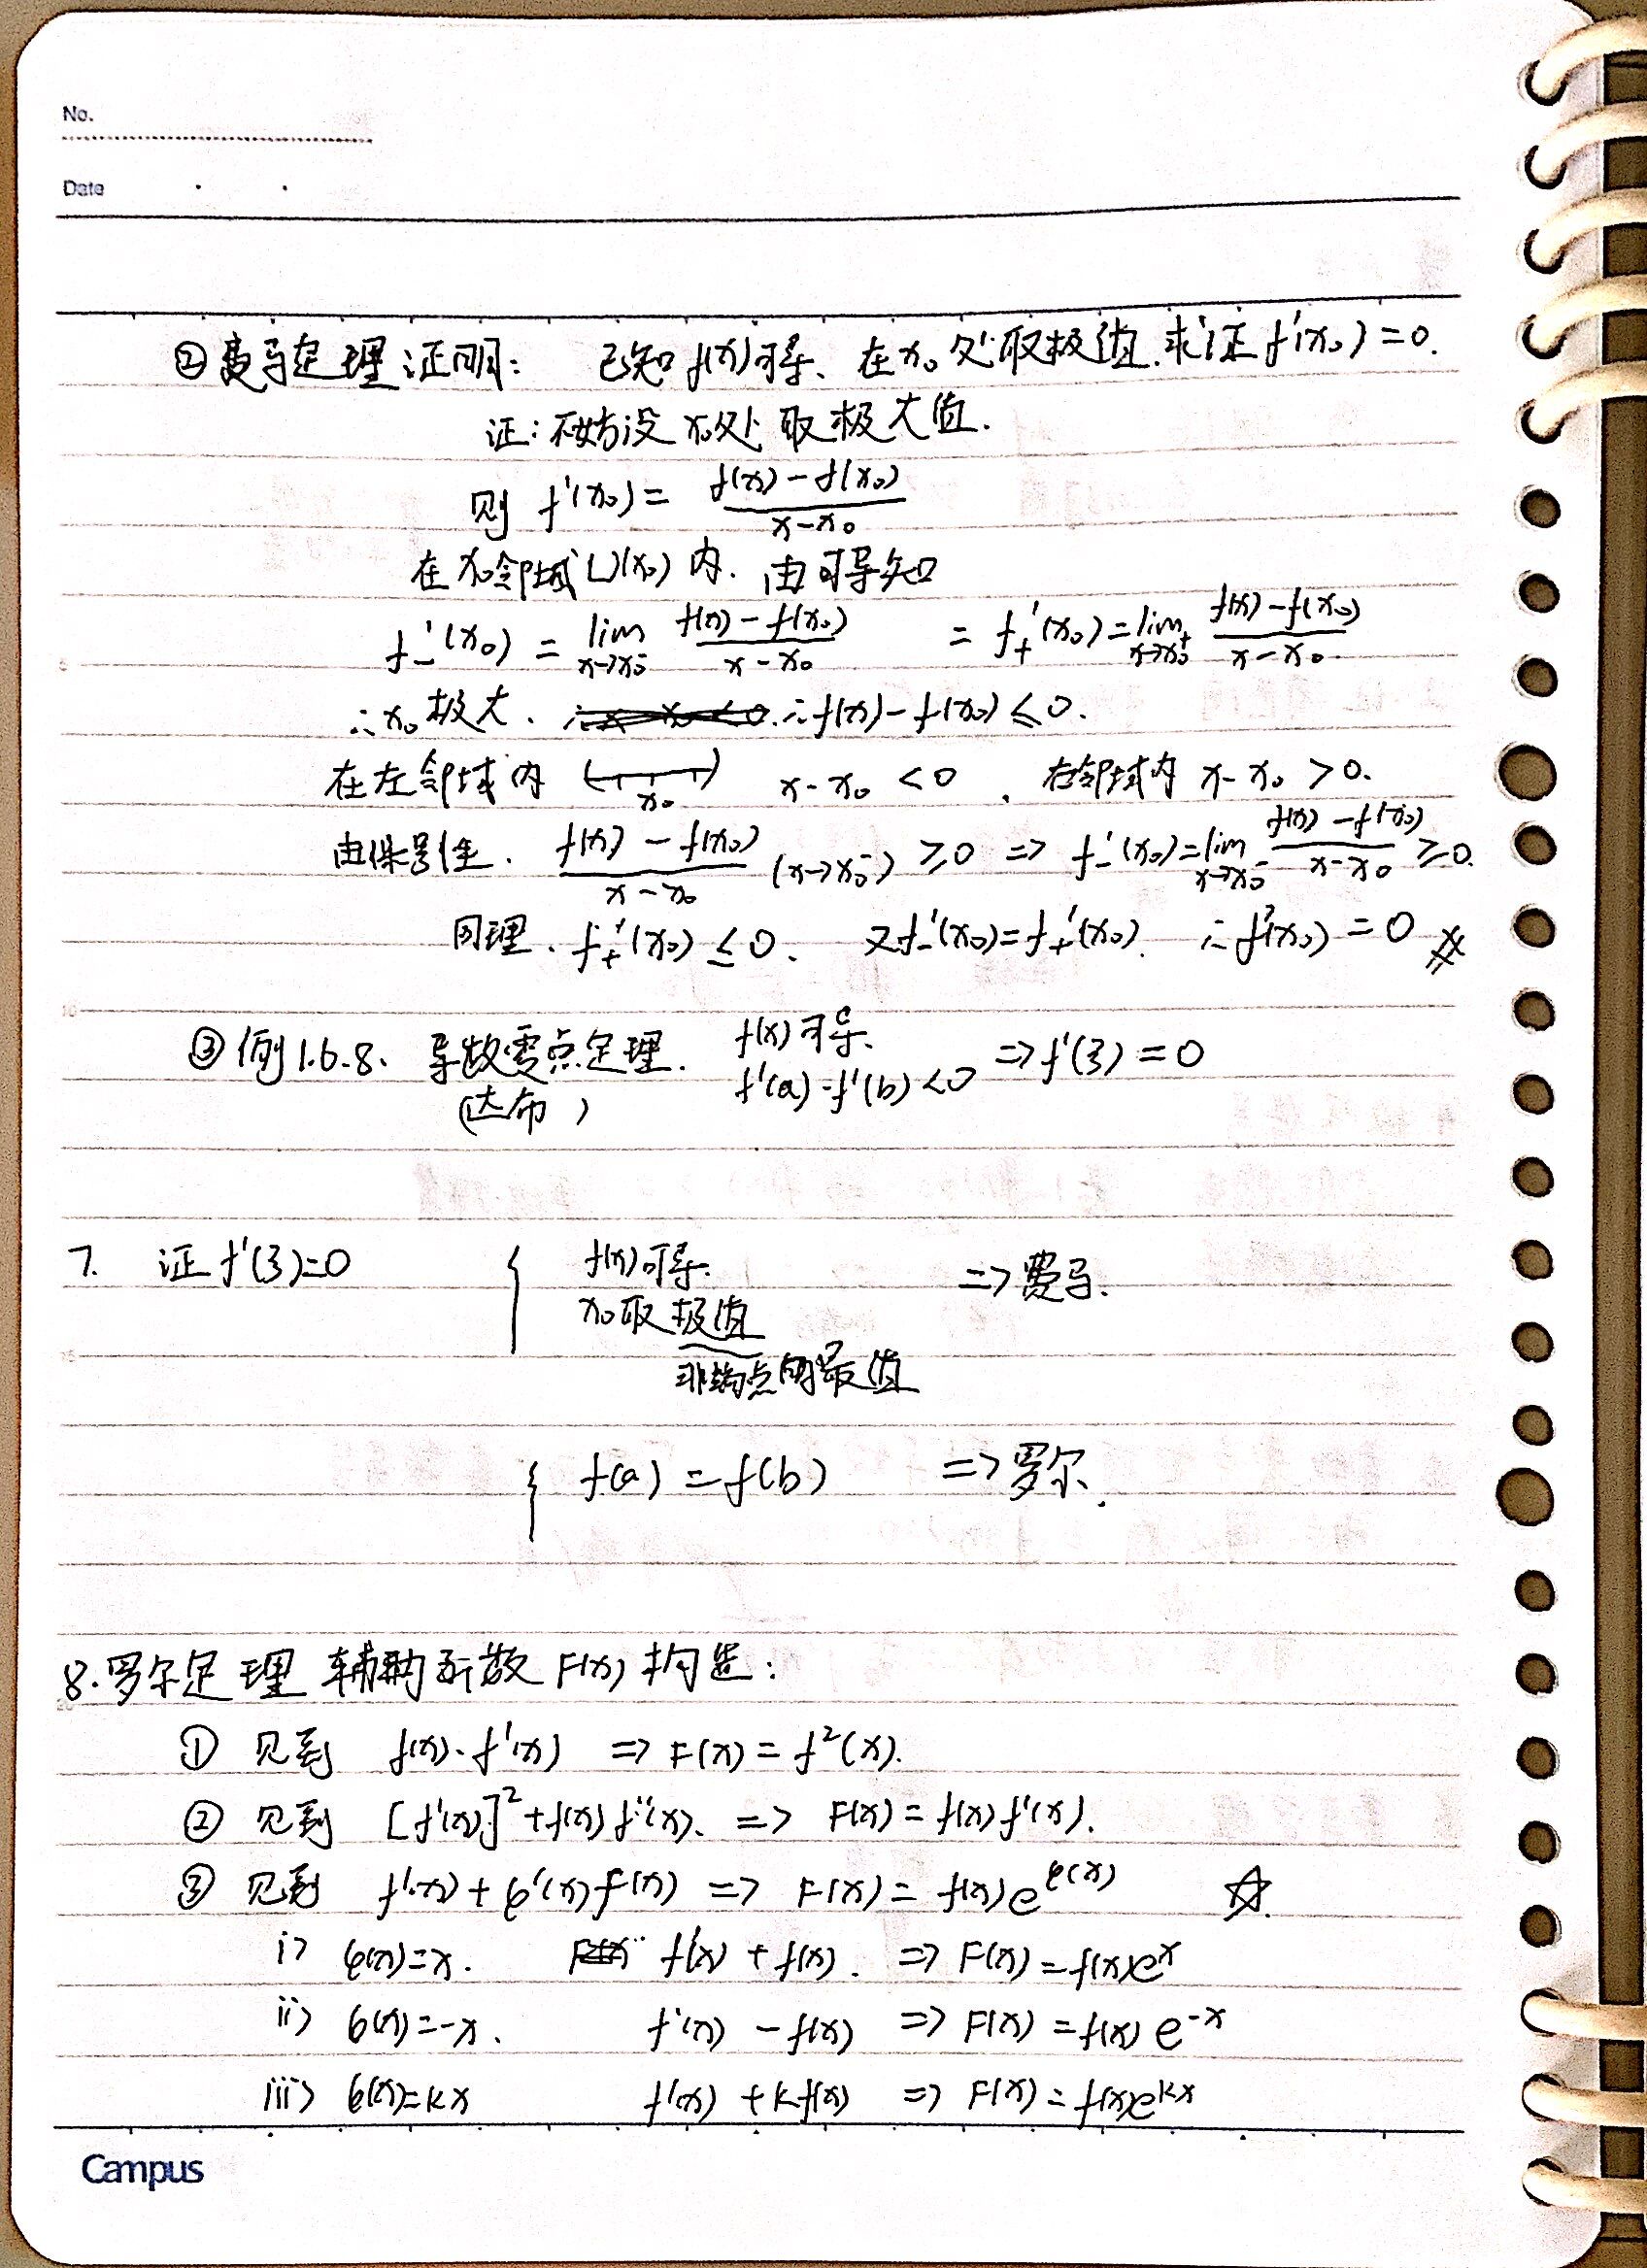 No.
Date
②费马定理证明: 已知f(x)可导、在x₀处取极值.求证f'(x₀)=0.
证:不妨设x₀处取极大值.
则 f'(x₀)= (f(x)-f(x₀))/(x-x₀)
在x₀邻域U(x₀)内. 由可导知
f₋'(x₀) = lim x→x₀⁻ (f(x)-f(x₀))/(x-x₀) = f₊'(x₀)=lim x→x₀⁺ (f(x)-f(x₀))/(x-x₀)
∴x₀极大. ∴f(x)-f(x₀)≤0.
在左邻域内 x₀ x-x₀<0 、右邻域内 x-x₀>0.
由保号性. (f(x)-f(x₀))/(x-x₀) (x→x₀⁻) ≥0 => f₋'(x₀)=lim x→x₀⁻ (f(x)-f(x₀))/(x-x₀) ≥0.
同理.f₊'(x₀)≤0. 又f₋'(x₀)=f₊'(x₀). ∴f'(x₀)=0 #
③例1.6.8. 导数零点定理. f(x)可导. f'(a)·f'(b)<0 =>f'(ξ)=0
(达布)
7. 证f'(ξ)=0 { f(x)可导. => 费马.
x₀取极值
非端点的最值
{ f(a)=f(b) => 罗尔.
8.罗尔定理 辅助函数F(x)构造:
① 见到 f(x)·f'(x) => F(x)=f²(x).
② 见到 [f'(x)]²+f(x)f''(x). => F(x)=f(x)f'(x).
③ 见到 f'(x)+φ'(x)f(x) => F(x)=f(x)e^φ(x) ☆.
i> φ(x)=x. f'(x)+f(x). => F(x)=f(x)eˣ
ii> φ(x)=-x. f'(x)-f(x) => F(x)=f(x)e⁻ˣ
iii> φ(x)=kx f'(x)+kf(x) => F(x)=f(x)eᵏˣ
Campus